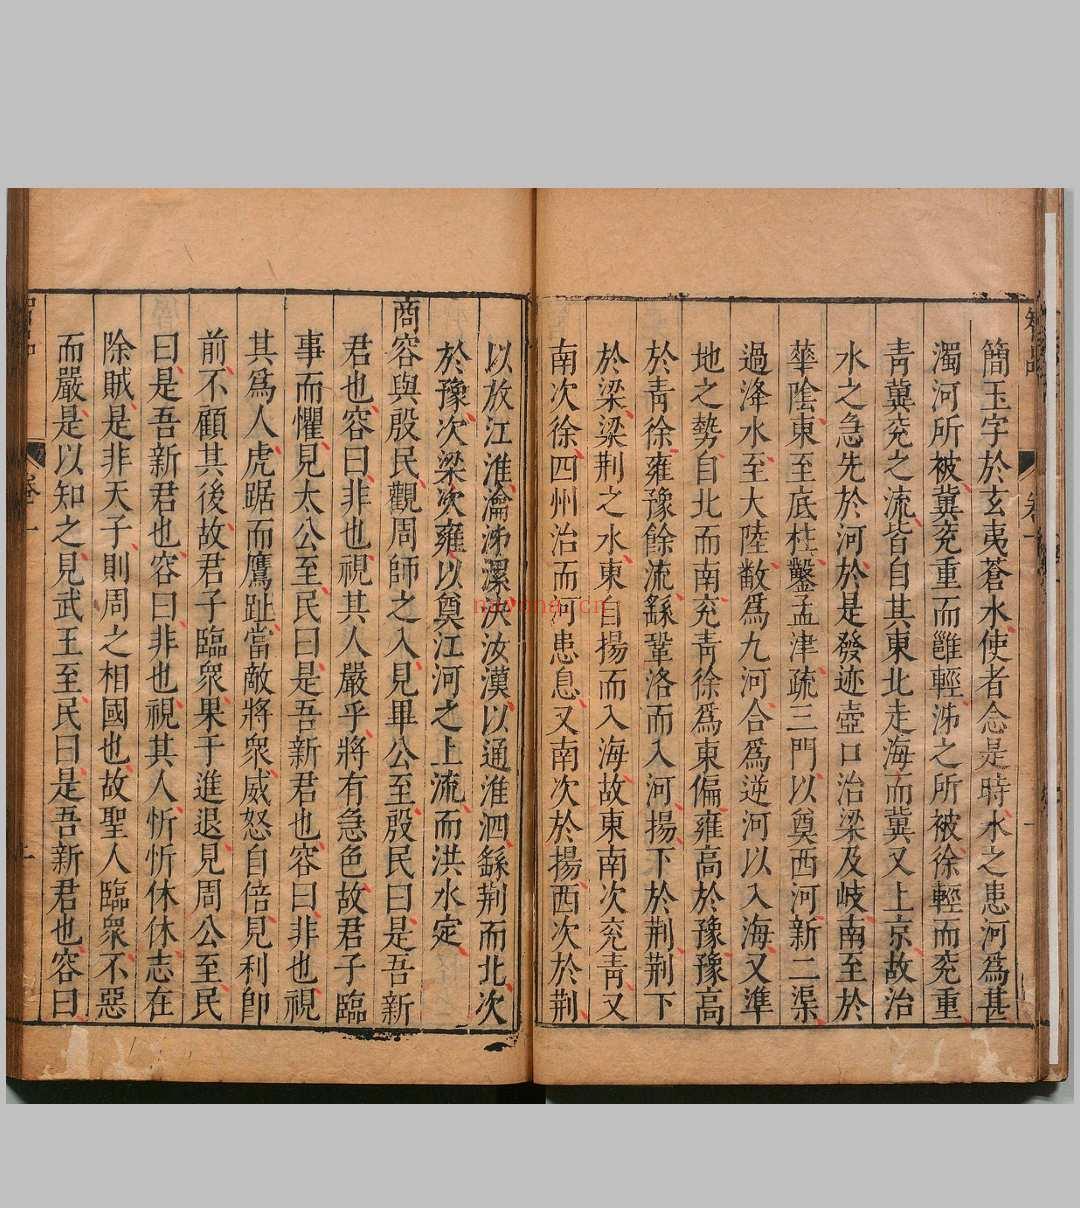 簡玉字於玄夷蒼水使者念是時水之患河為甚
濁河所被冀兗重而雝輕泲之所被徐輕而兗重
青冀兗之流皆自其東北走海而冀又上京故治
水之急先於河於是發迹壺口治梁及岐南至於
華陰東至底柱鑿孟津疏三門以奠西河新二渠
過洚水至大陸散為九河合為逆河以入海又準
地之勢自北而南兗青徐為東偏雍高於豫豫高
於青徐雍豫餘流繇鞏洛而入河揚下於荆荆下
於梁梁荆之水東自揚而入海故東南次兗青又
南次徐四州治而河患息又南次於揚西次於荆
以放江淮瀹泲漯決汝漢以通淮泗繇荆而北次
於豫次梁次雍以奠江河之上流而洪水定
商容與殷民觀周師之入見畢公至殷民曰是吾新
君也容曰非也視其人嚴乎將有急色故君子臨
事而懼見太公至民曰是吾新君也容曰非也視
其為人虎踞而鷹趾當敵將眾威怒自倍見利即
前不顧其後故君子臨眾果于進退見周公至民
曰是吾新君也容曰非也視其人忻忻休休志在
除賊是非天子則周之相國也故聖人臨眾不惡
而嚴是以知之見武王至民曰是吾新君也容曰
卷一